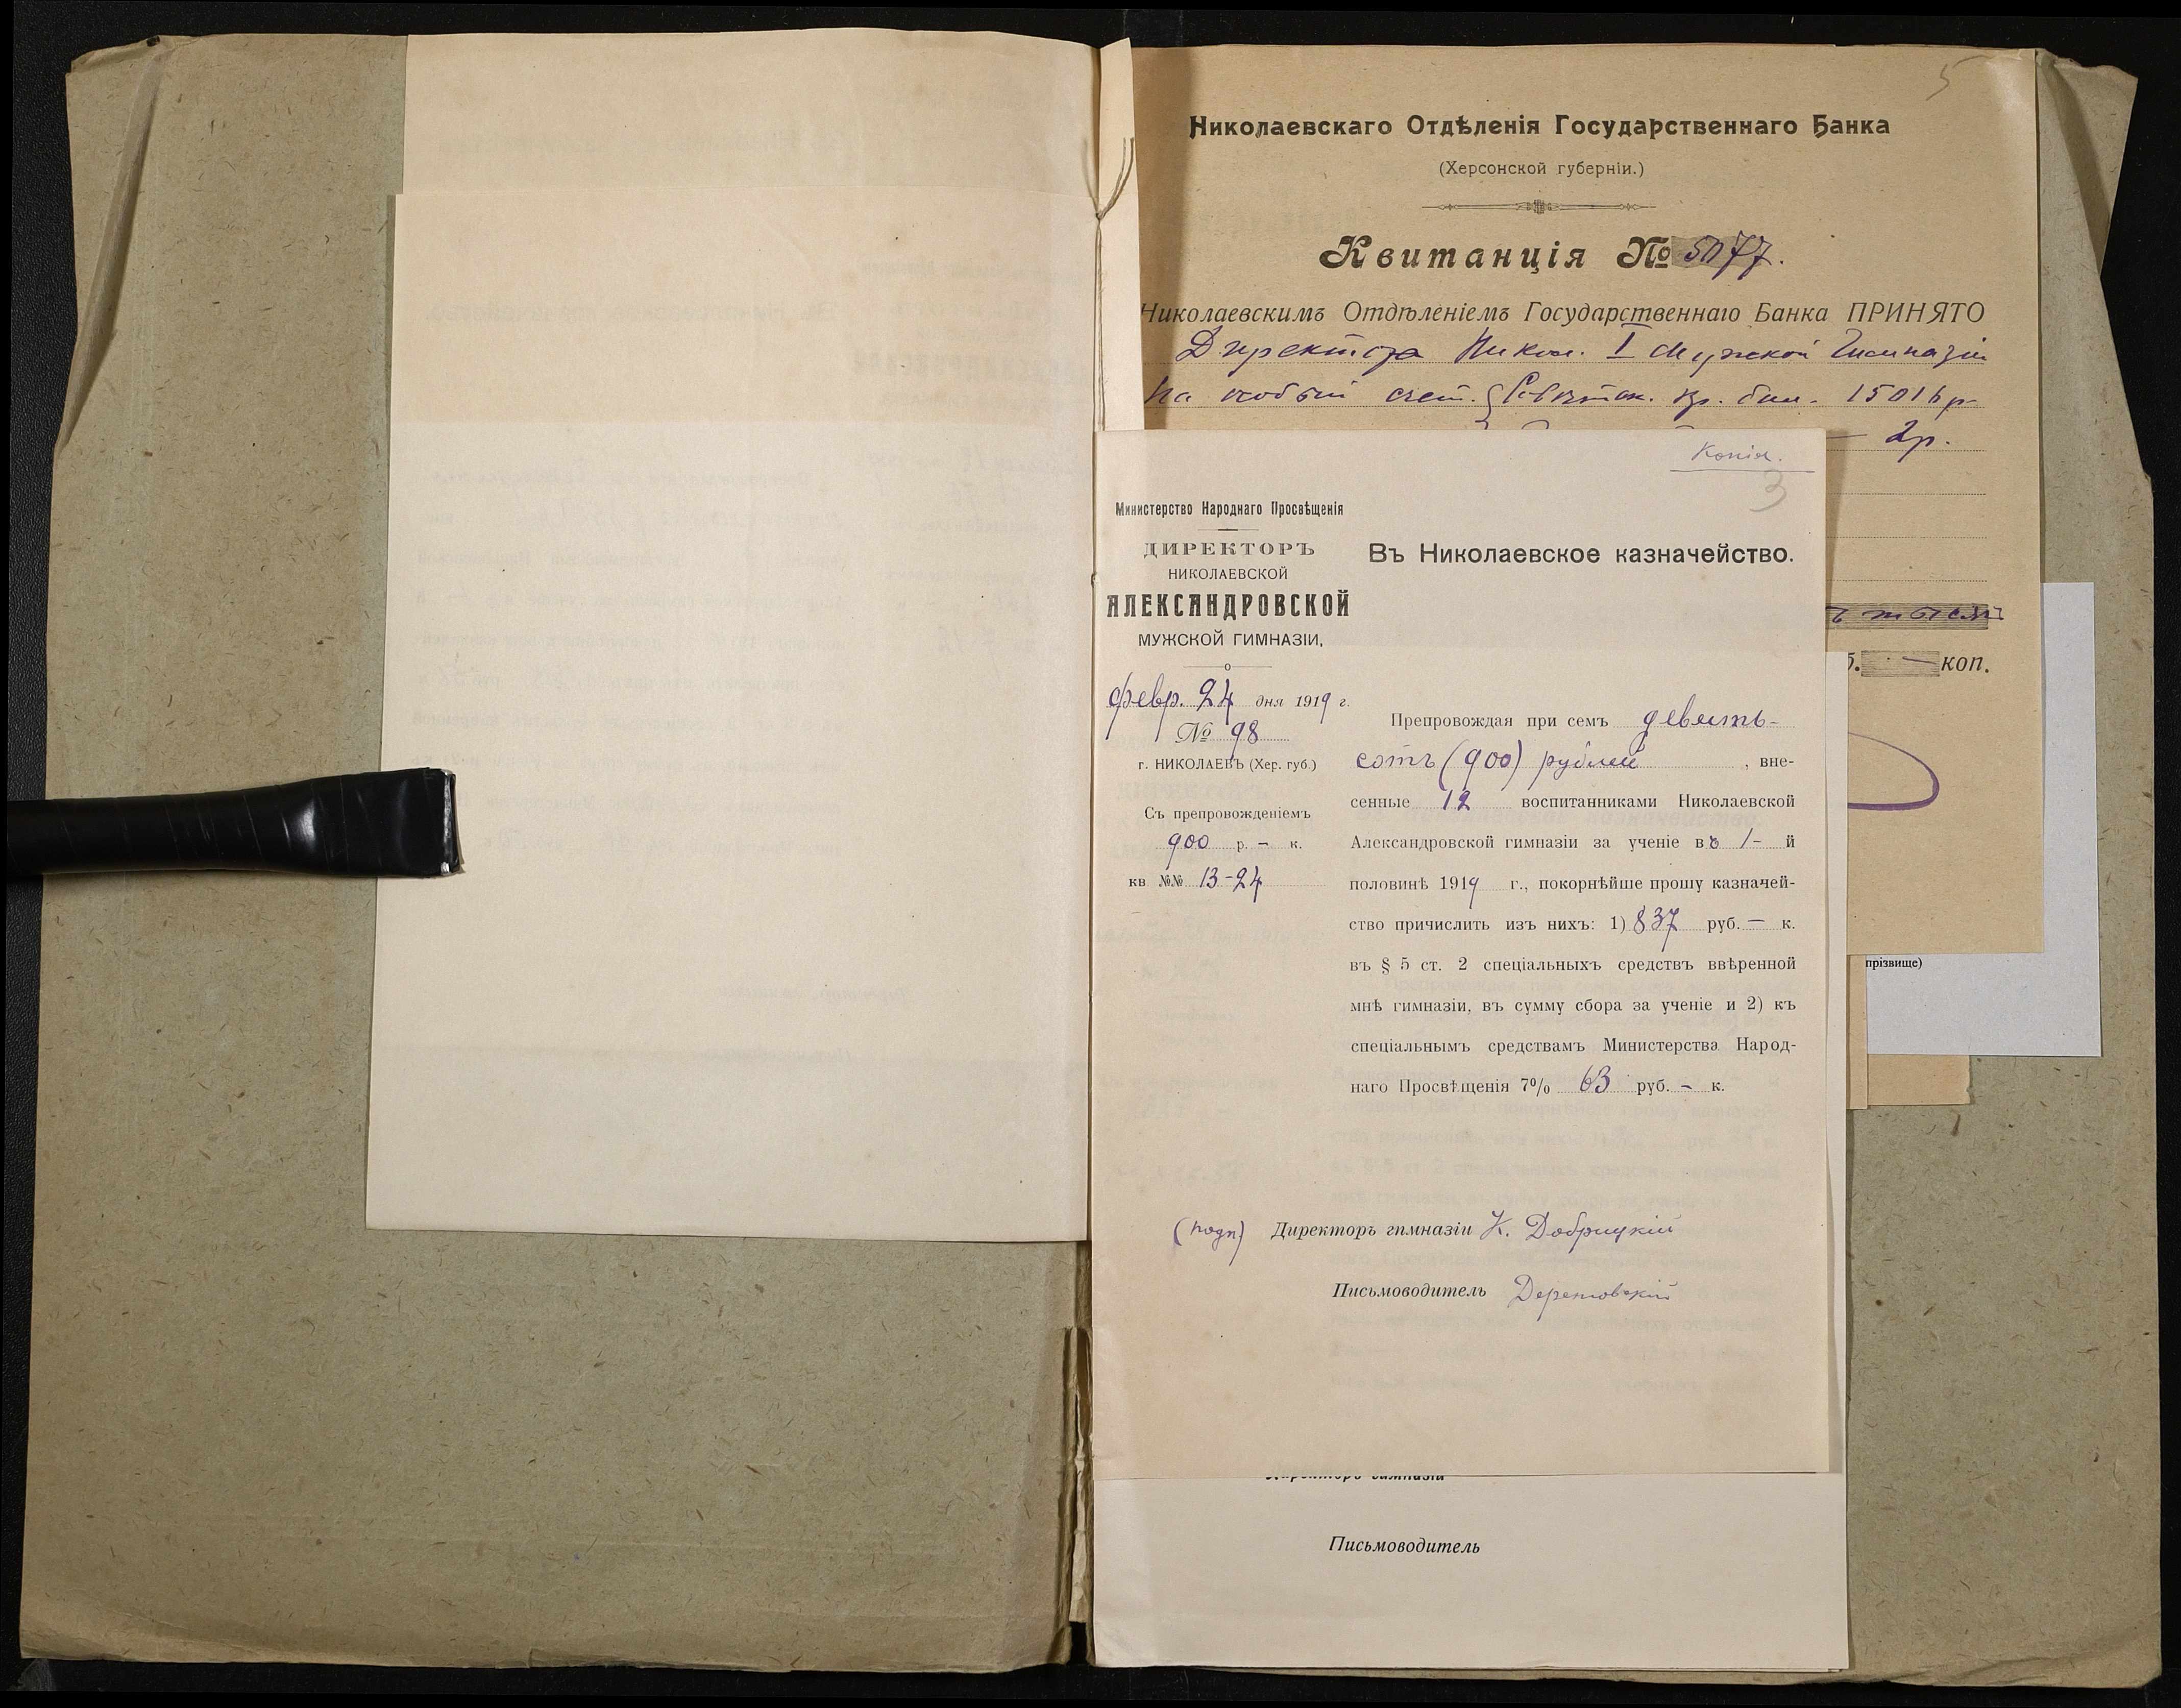 5
Николаевскаго Отдѣленія Государственнаго Банка
(Херсонской губерніи.)
Квитанція № 5077.
Николаевскимъ Отдѣленіемъ Государственнаго Банка ПРИНЯТО
Директора Никол. I Мужской Гимназіи
На особый счет. бил. 15016 р
— 2р.
коп.
прізвище)
Копія.
3
Министерство Народнаго Просвѣщенія
ДИРЕКТОРЪ
НИКОЛАЕВСКОЙ
АЛЕКСАНДРОВСКОЙ
МУЖСКОЙ ГИМНАЗІИ,
февр. 24 дня 1919 г.
№ 98
г. НИКОЛАЕВЪ (Хер. губ.)
Съ препровожденіемъ
900 р. – к.
кв №№ 13-24
Въ Николаевское казначейство.
Препровождая при семъ девять-
сотъ (900) рублей, вне-
сенные 12 воспитанниками Николаевской
Александровской гимназіи за ученіе въ 1- й
половинѣ 1919 г., покорнѣйше прошу казначей-
ство причислить изъ нихъ: 1) 837 руб. — к.
въ § 5 ст. 2 спеціальныхъ средствъ ввѣренной
мнѣ гимназіи, въ сумму сбора за ученіе и 2) къ
спеціальнымъ средствамъ Министерства Народ-
наго Просвѣщенія 7% 63 руб. – к.
(подп) Директоръ гимназіи К. Добрицкій
Письмоводитель
Директоръ гимназіи
Письмоводитель